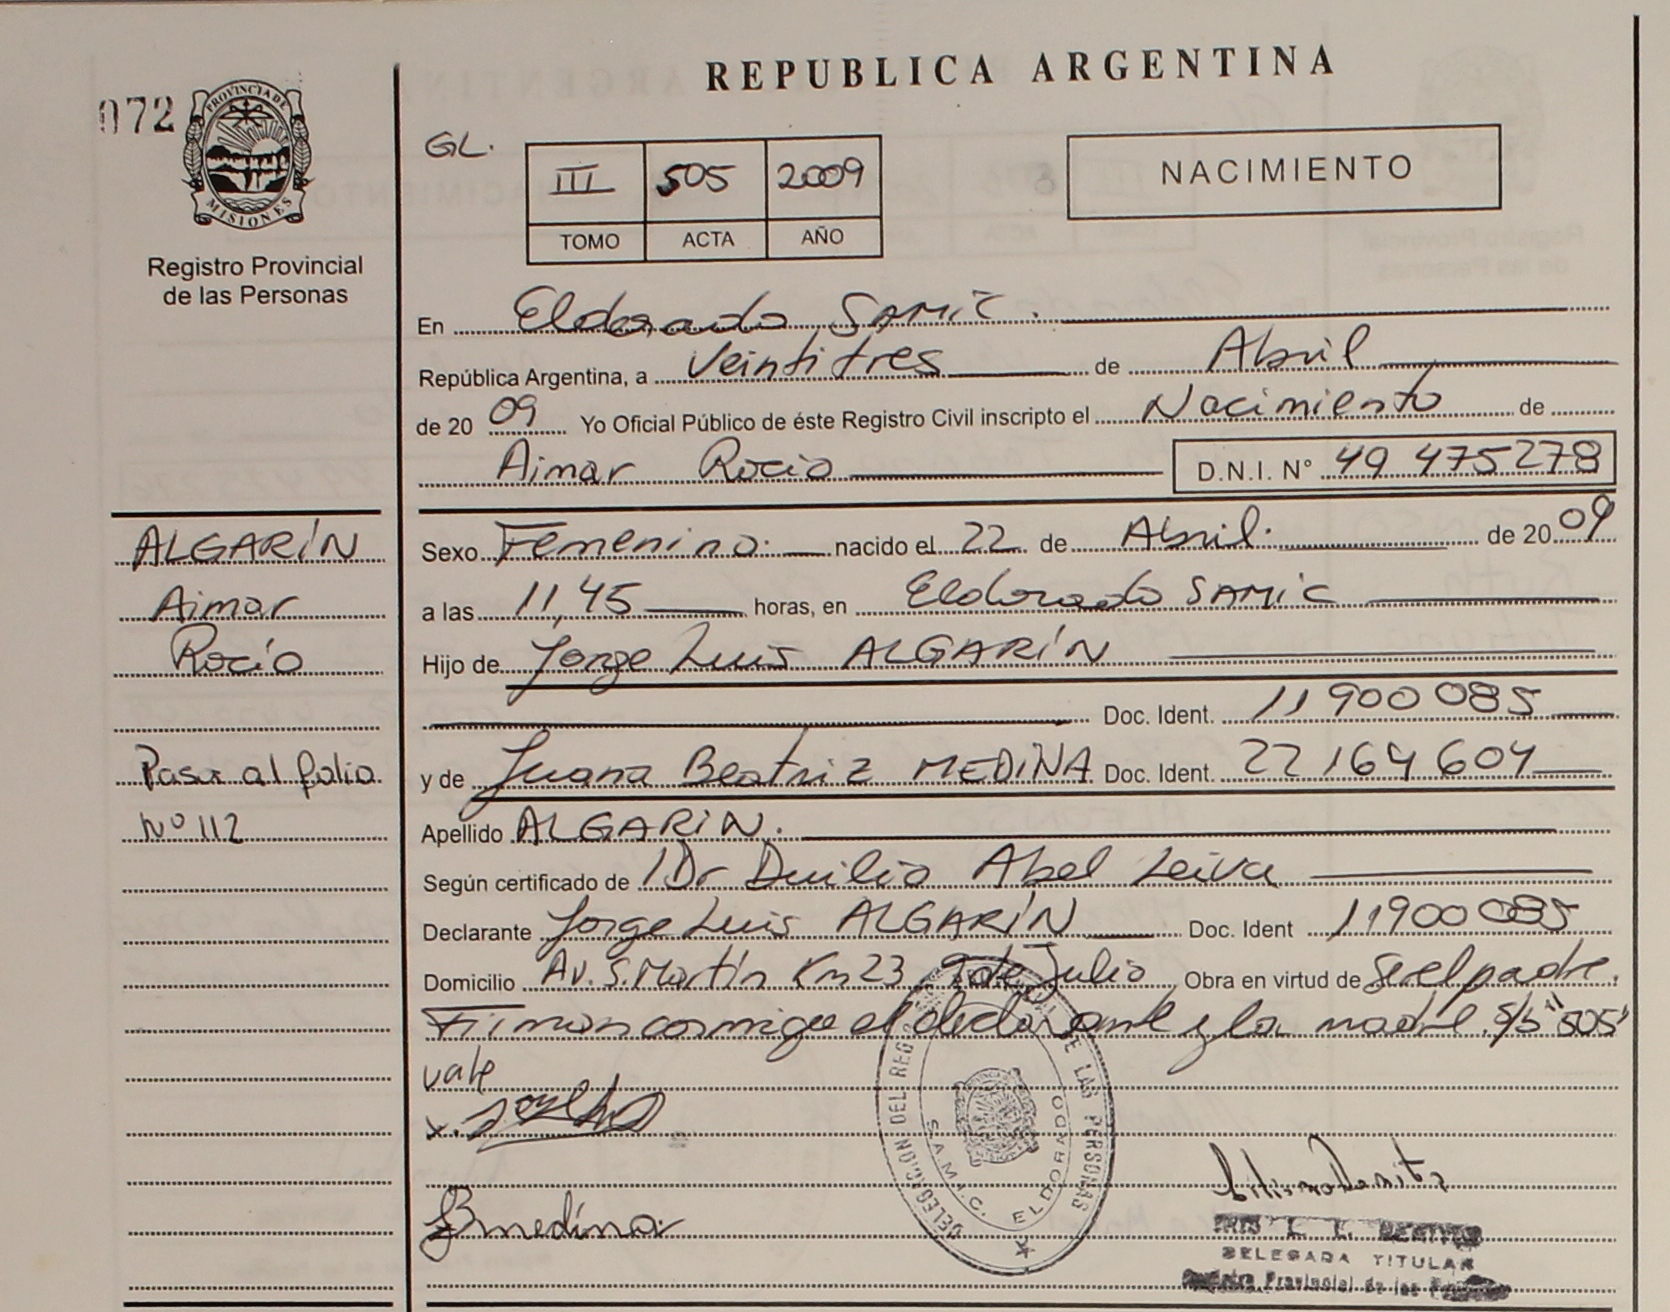 REPUBLICA ARGENTINA
072
PROVINCIA DE
MISIONES
Registro Provincial
de las Personas
GL.
III 505 2009
TOMO ACTA AÑO
NACIMIENTO
En Eldorado SAMIC.
República Argentina, a Veintitres de Abril
de 2009 Yo Oficial Público de éste Registro Civil inscripto el Nacimiento de
Aimar Rocio D.N.I. N° 49 475278
ALGARÍN
Aimar
Rocío
Pasa al folio
Nº 112
Sexo Femenino. nacido el 22 de Abril. de 2009
a las 11,45 horas, en Eldorado SAMIC
Hijo de Jorge Luis ALGARÍN
Doc. Ident. 11900085
y de Juana Beatriz MEDINA Doc. Ident. 22164604
Apellido ALGARIN.
Según certificado de Dr Duilio Abel Leiva
Declarante Jorge Luis ALGARÍN Doc. Ident 11900085
Domicilio Av. S. Martín Km 23 9 de Julio Obra en virtud de Ser el padre.
Firman conmigo el declarante y la madre. S/b "505"
vale
DELEGACION DEL REGISTRO PROVINCIAL DE LAS PERSONAS
S.A.M.I.C. ELDORADO
JBmedina
DELEGADA TITULAR
Registro Provincial de las